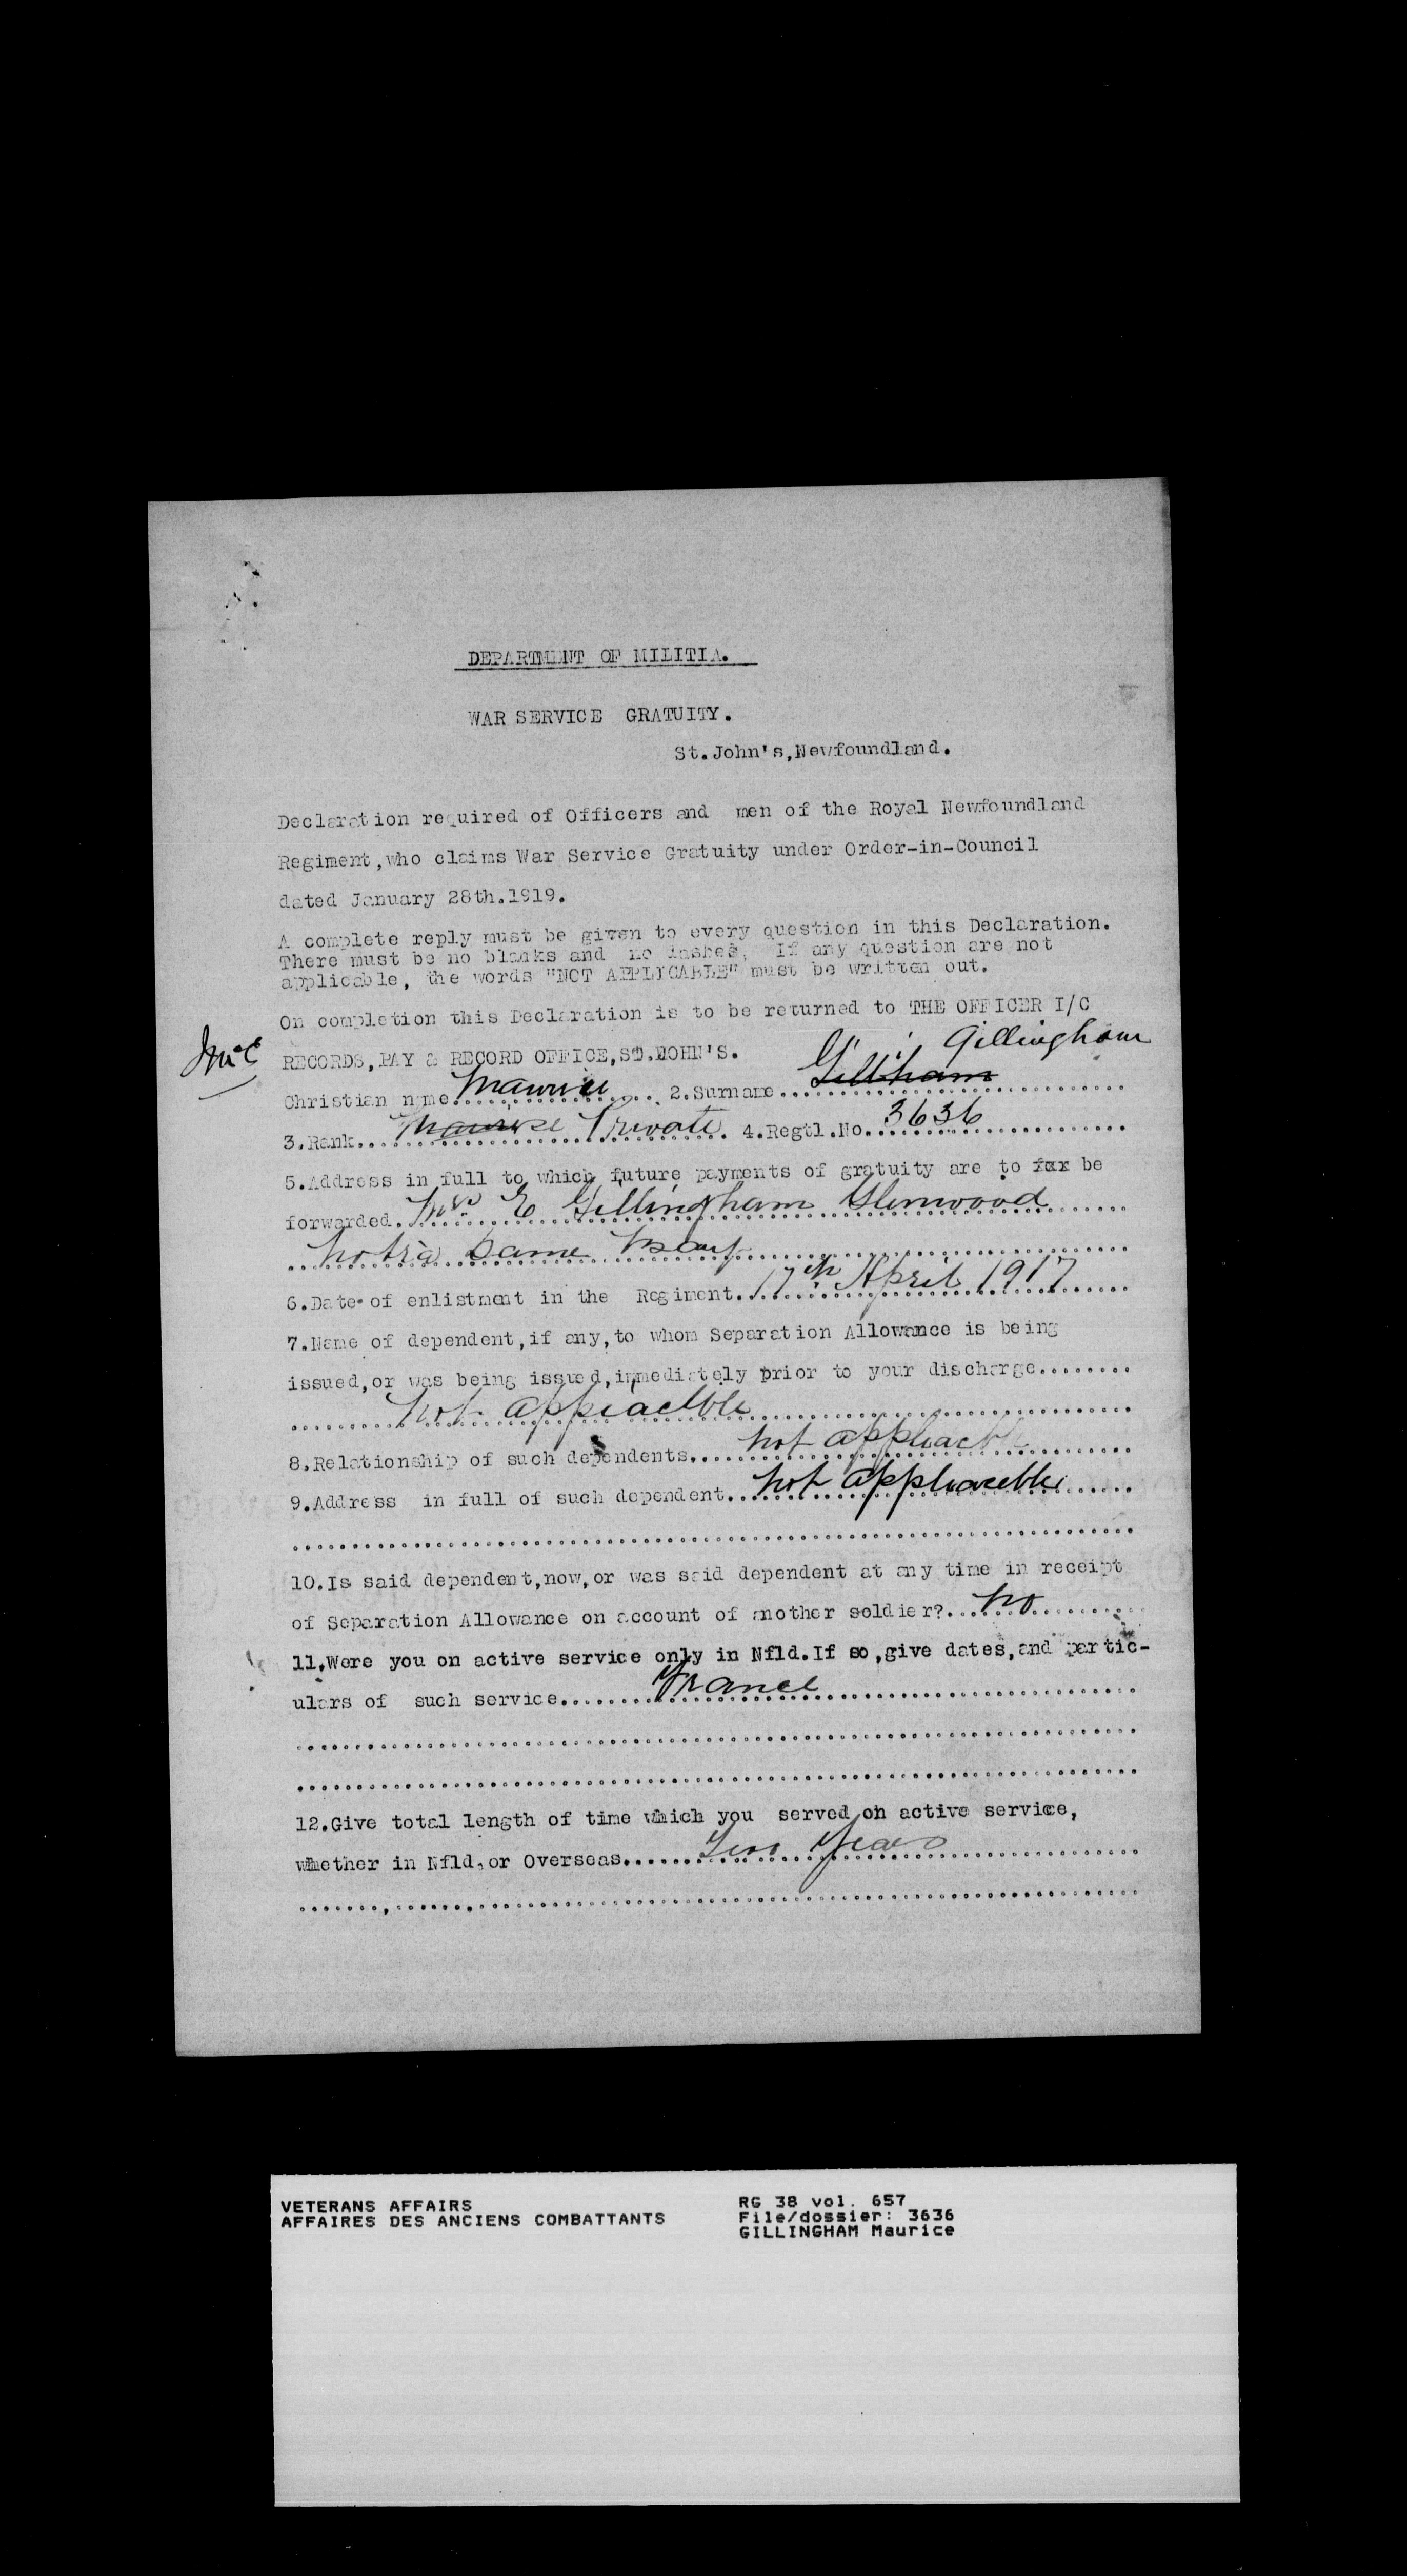 DEPARTMENT OF MILITIA.
WAR SERVICE GRATUITY.
St.John's,Newfoundland.
Declaration required of Officers and men of the Royal Newfoundland
Regiment,who claims War Service Gratuity under Order-in-Council
dated January 28th.1919.
A complete reply must be given to every question in this Declaration.
There must be no blanks and no dashes, If any question are not
applicable, the words "NOT APPLICABLE" must be written out.
On completion this Declaration is to be returned to THE OFFICER I/C
RECORDS,PAY & RECORD OFFICE,ST.JOHN'S. Gillingham
Christian name Maurice 2.Surname Gillham
3.Rank Maurice Private 4.Regtl.No. 3636
5.Address in full to which future payments of gratuity are to fax be
forwarded. Mrs E Gillingham Glenwood
Notra Dame Bay
6.Date of enlistment in the Regiment 17th April 1917
7.Name of dependent,if any,to whom Separation Allowance is being
issued,or was being issued,immediately prior to your discharge
not appiacble
8.Relationship of such dependents not appliacble
9.Address in full of such dependent not appliaceble
10.Is said dependent,now,or was said dependent at any time in receipt
of Separation Allowance on account of another soldier? no
11.Were you on active service only in Nfld.If so,give dates,and partic-
ulars of such service France
12.Give total length of time which you served on active service,
whether in Nfld.or Overseas years
VETERANS AFFAIRS
AFFAIRES DES ANCIENS COMBATTANTS
RG 38 vol. 657
File/dossier: 3636
GILLINGHAM Maurice